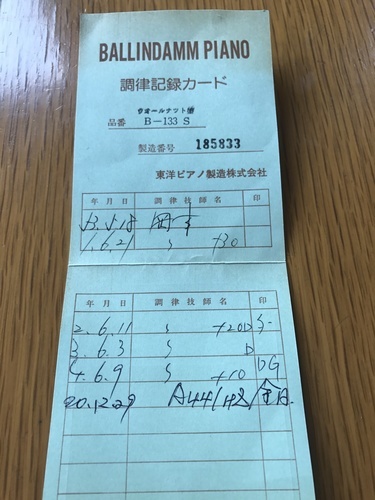 BALLINDAMM PIANO
調律記録カード
ウオールナット
品番 B-133 S
製造番号 185833
東洋ピアノ製造株式会社
年月日 調律技師名 印
1.6.21 〃 +30
年月日 調律技師名 印
2.6.11 〃 +20D
3.6.3 〃 D
4.6.9 〃 +10 DG
20.12.29 A441